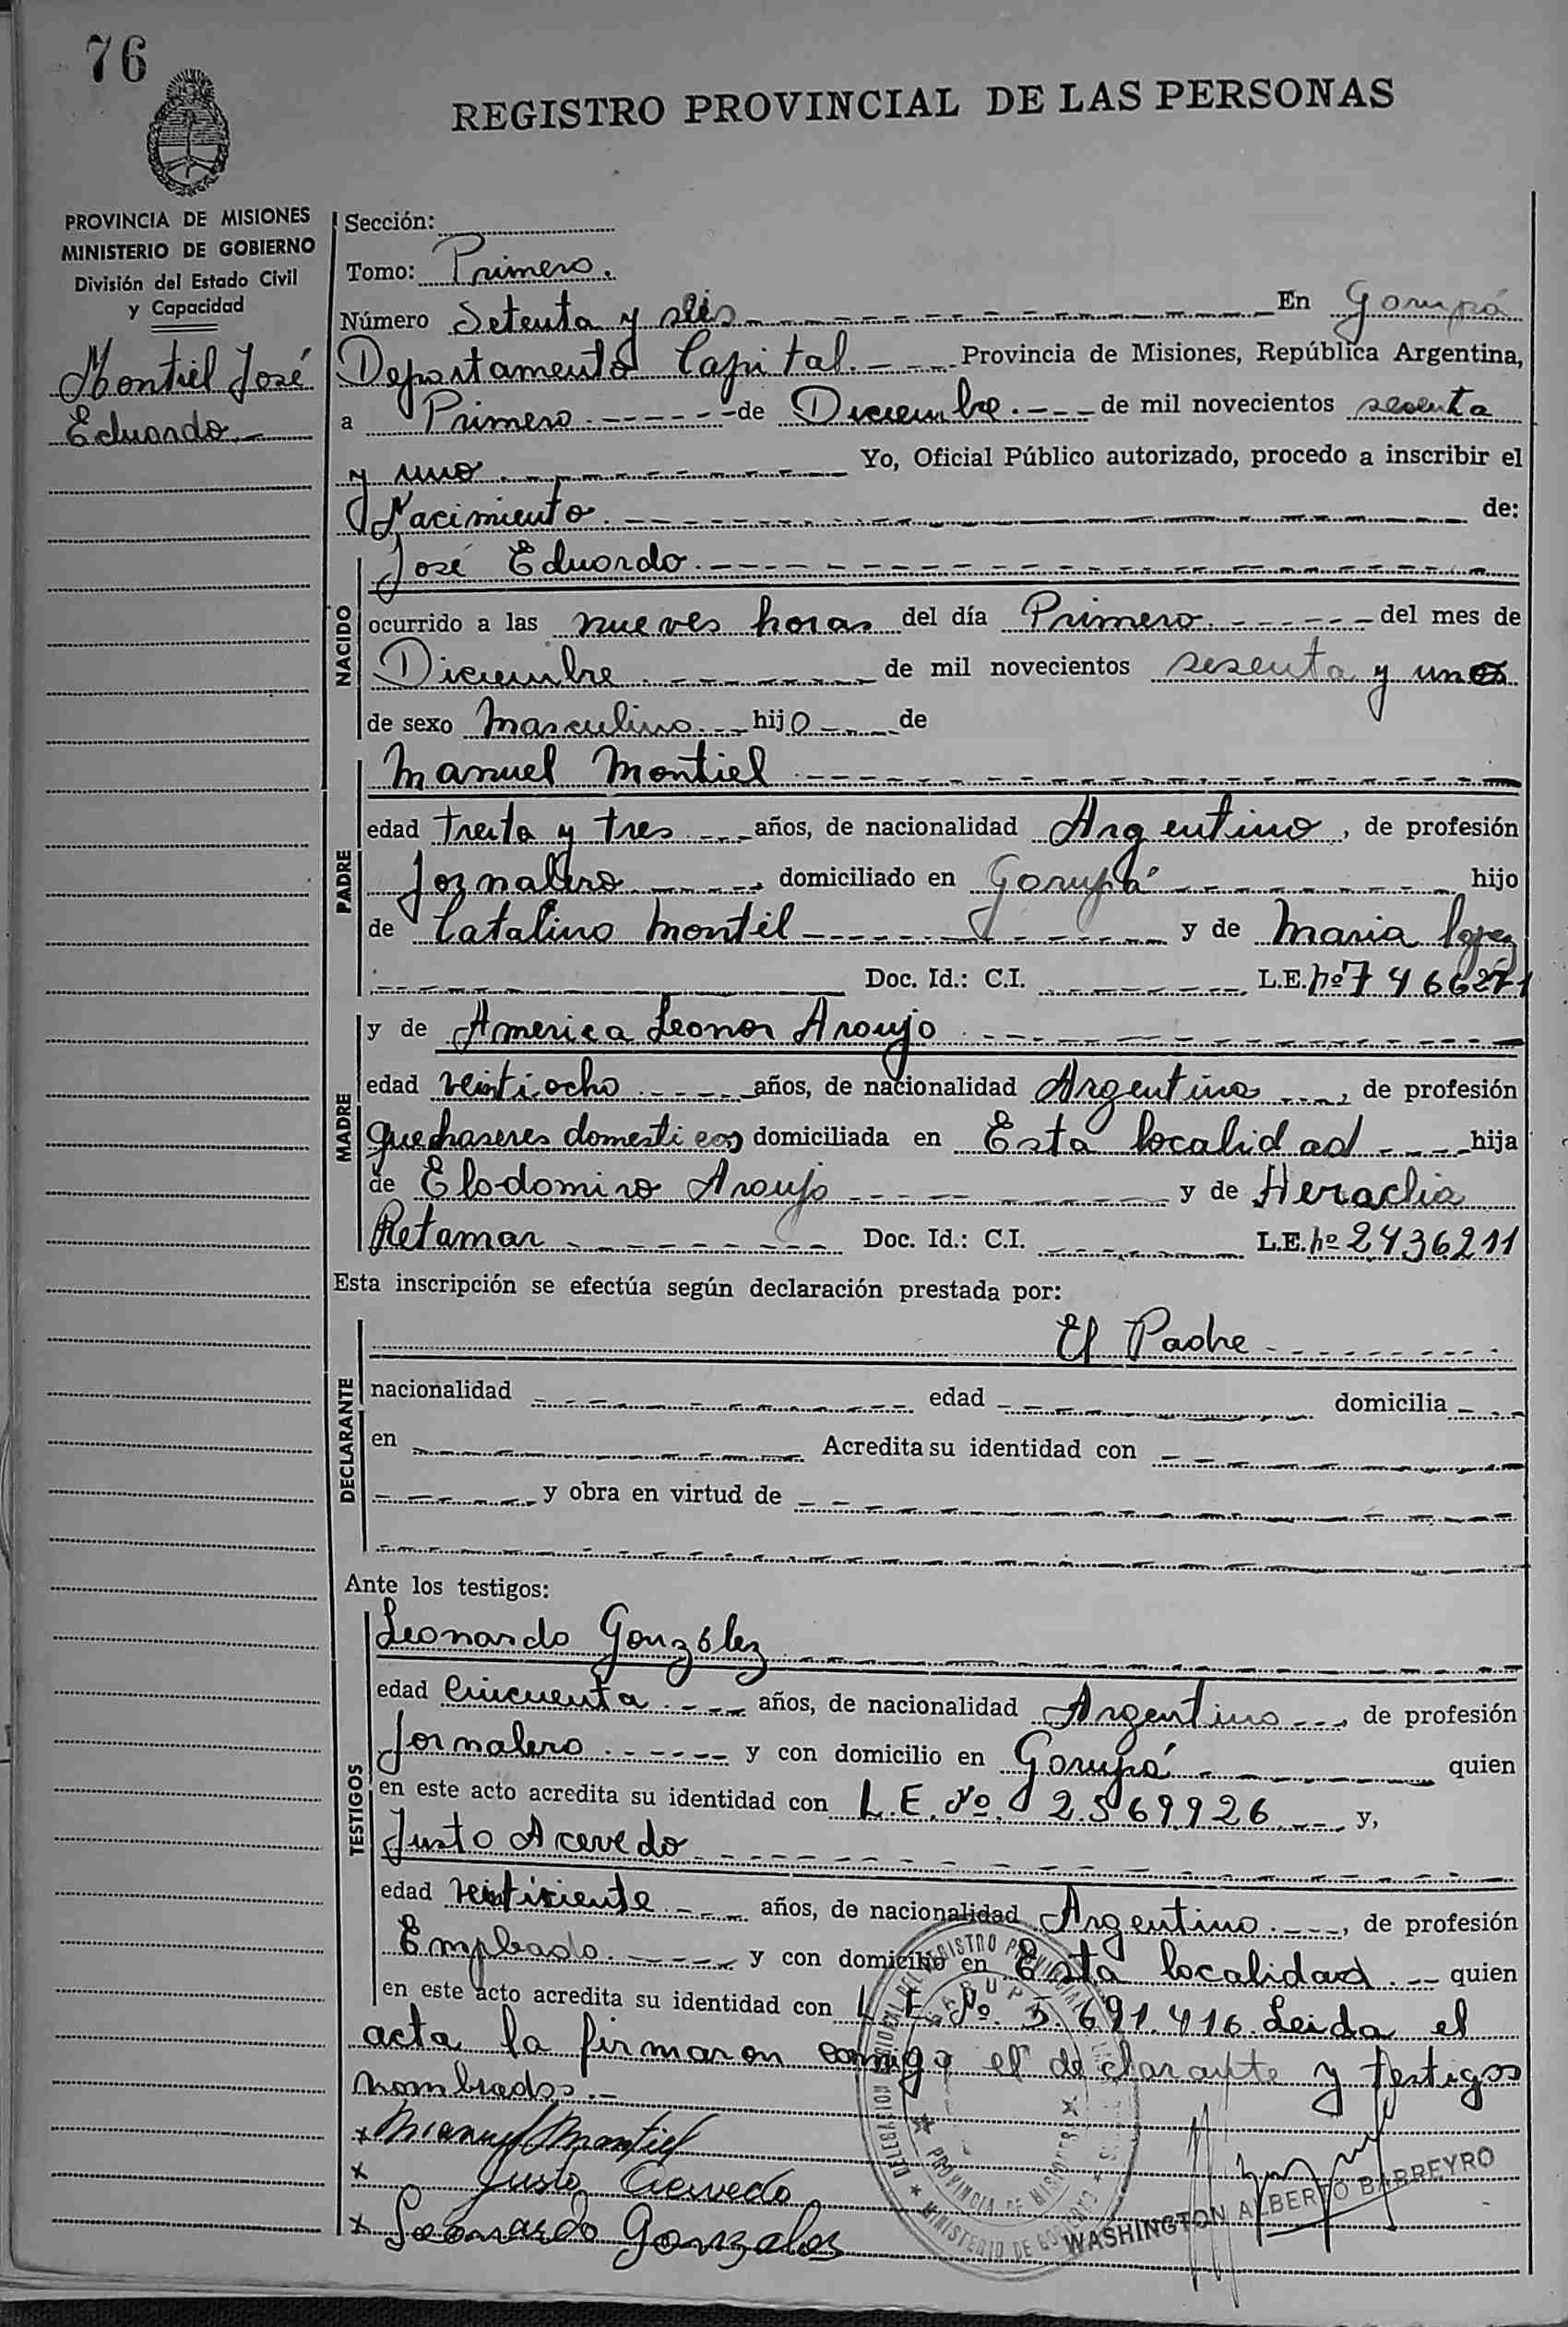 76
REGISTRO PROVINCIAL DE LAS PERSONAS
PROVINCIA DE MISIONES
MINISTERIO DE GOBIERNO
División del Estado Civil
y Capacidad
Montiel José
Eduardo.—
Sección:
Tomo: Primero.
Número Setenta y seis En Garupá
Departamento Capital. Provincia de Misiones, República Argentina,
a Primero de Diciembre. de mil novecientos sesenta
y uno Yo, Oficial Público autorizado, procedo a inscribir el
Nacimiento. de:
NACIDO
José Eduardo.
ocurrido a las nueves horas del día Primero. del mes de
Diciembre. de mil novecientos sesenta y uno
de sexo Masculino. hijo de
PADRE
Manuel Montiel
edad treita y tres años, de nacionalidad Argentino, de profesión
Jornalero, domiciliado en Garupá hijo
de Catalino Montil y de Maria Lopez
Doc. Id.: C.I. L.E. nº 7466271
MADRE
y de America Leonor Araujo
edad veintiocho años, de nacionalidad Argentina, de profesión
quehaseres domesticos domiciliada en Esta localidad hija
de Elodomiro Araujo y de Heraclia
Retamar Doc. Id.: C.I. L.E. nº 2436211
Esta inscripción se efectúa según declaración prestada por:
DECLARANTE
El Padre
nacionalidad edad domicilia
en Acredita su identidad con
y obra en virtud de
Ante los testigos:
TESTIGOS
Leonardo González
edad Cincuenta. años, de nacionalidad Argentino, de profesión
Jornalero. y con domicilio en Garupá quien
en este acto acredita su identidad con L.E. Nº. 2.569.926 y,
Justo Acevedo
edad veintisiente. años, de nacionalidad Argentino., de profesión
Empleado. y con domicilio en Esta localidad. quien
en este acto acredita su identidad con L.E. Nº. 5.691.416. Leida el
acta la firmaron conmigo el declarante y testigos
nombrados.—
x Manuel Montiel
x Justo Acevedo
x Leonardo Gonzales
GARUPA
PROVINCIA DE MISIONES
MINISTERIO DE GOBIERNO
WASHINGTON ALBERTO BARREYRO